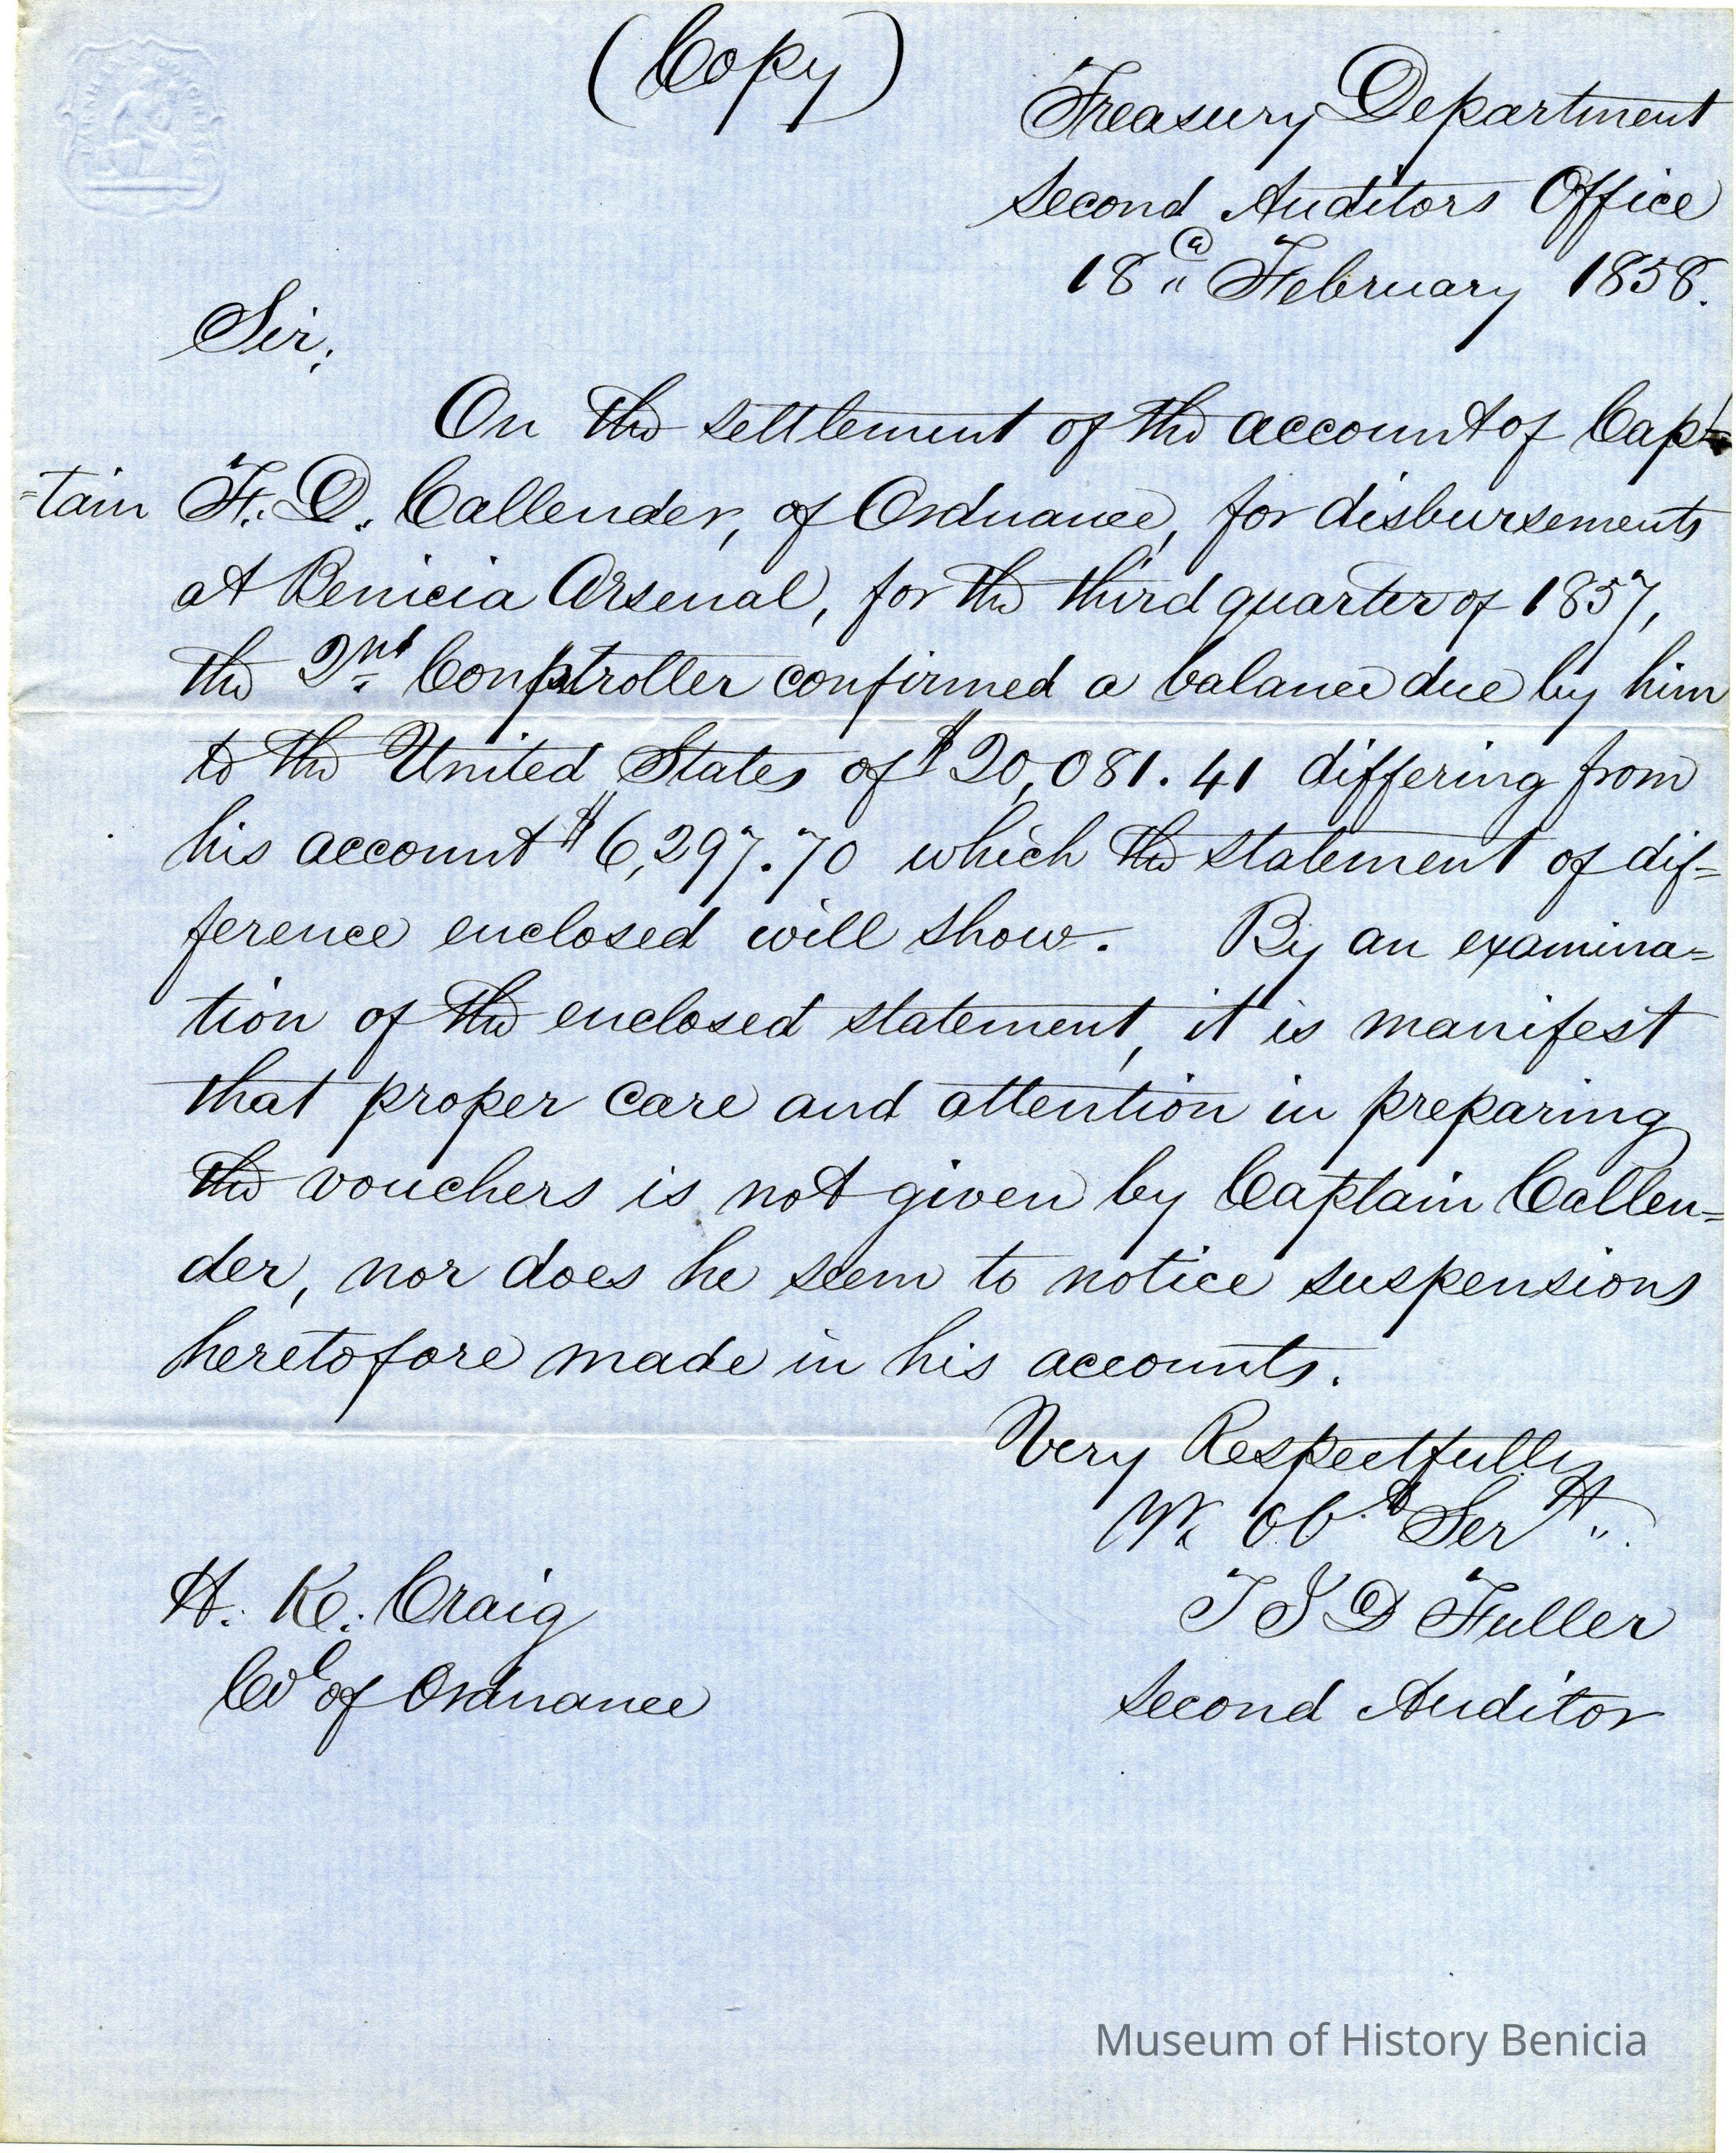 (Copy)
Treasury Department
Second Auditors Office
18th February 1858.
Sir;
On the settlement of the account of Cap=
=tain F. D. Callender, of Ordnance, for disbursements
at Benicia Arsenal, for the third quarter of 1857,
the 2nd Comptroller confirmed a balance due by him
to the United States of $20,081.41 differing from
his account $6,297.70 which the statement of dif=
ference enclosed will show. By an examina=
tion of the enclosed statement, it is manifest
that proper care and attention in preparing
the vouchers is not given by Captain Callen=
der, nor does he seem to notice suspensions
heretofore made in his accounts.
Very Respectfully
Yr. Obt Sert.
T J D Fuller
Second Auditor
H. K. Craig
Col of Ordnance
Museum of History Benicia